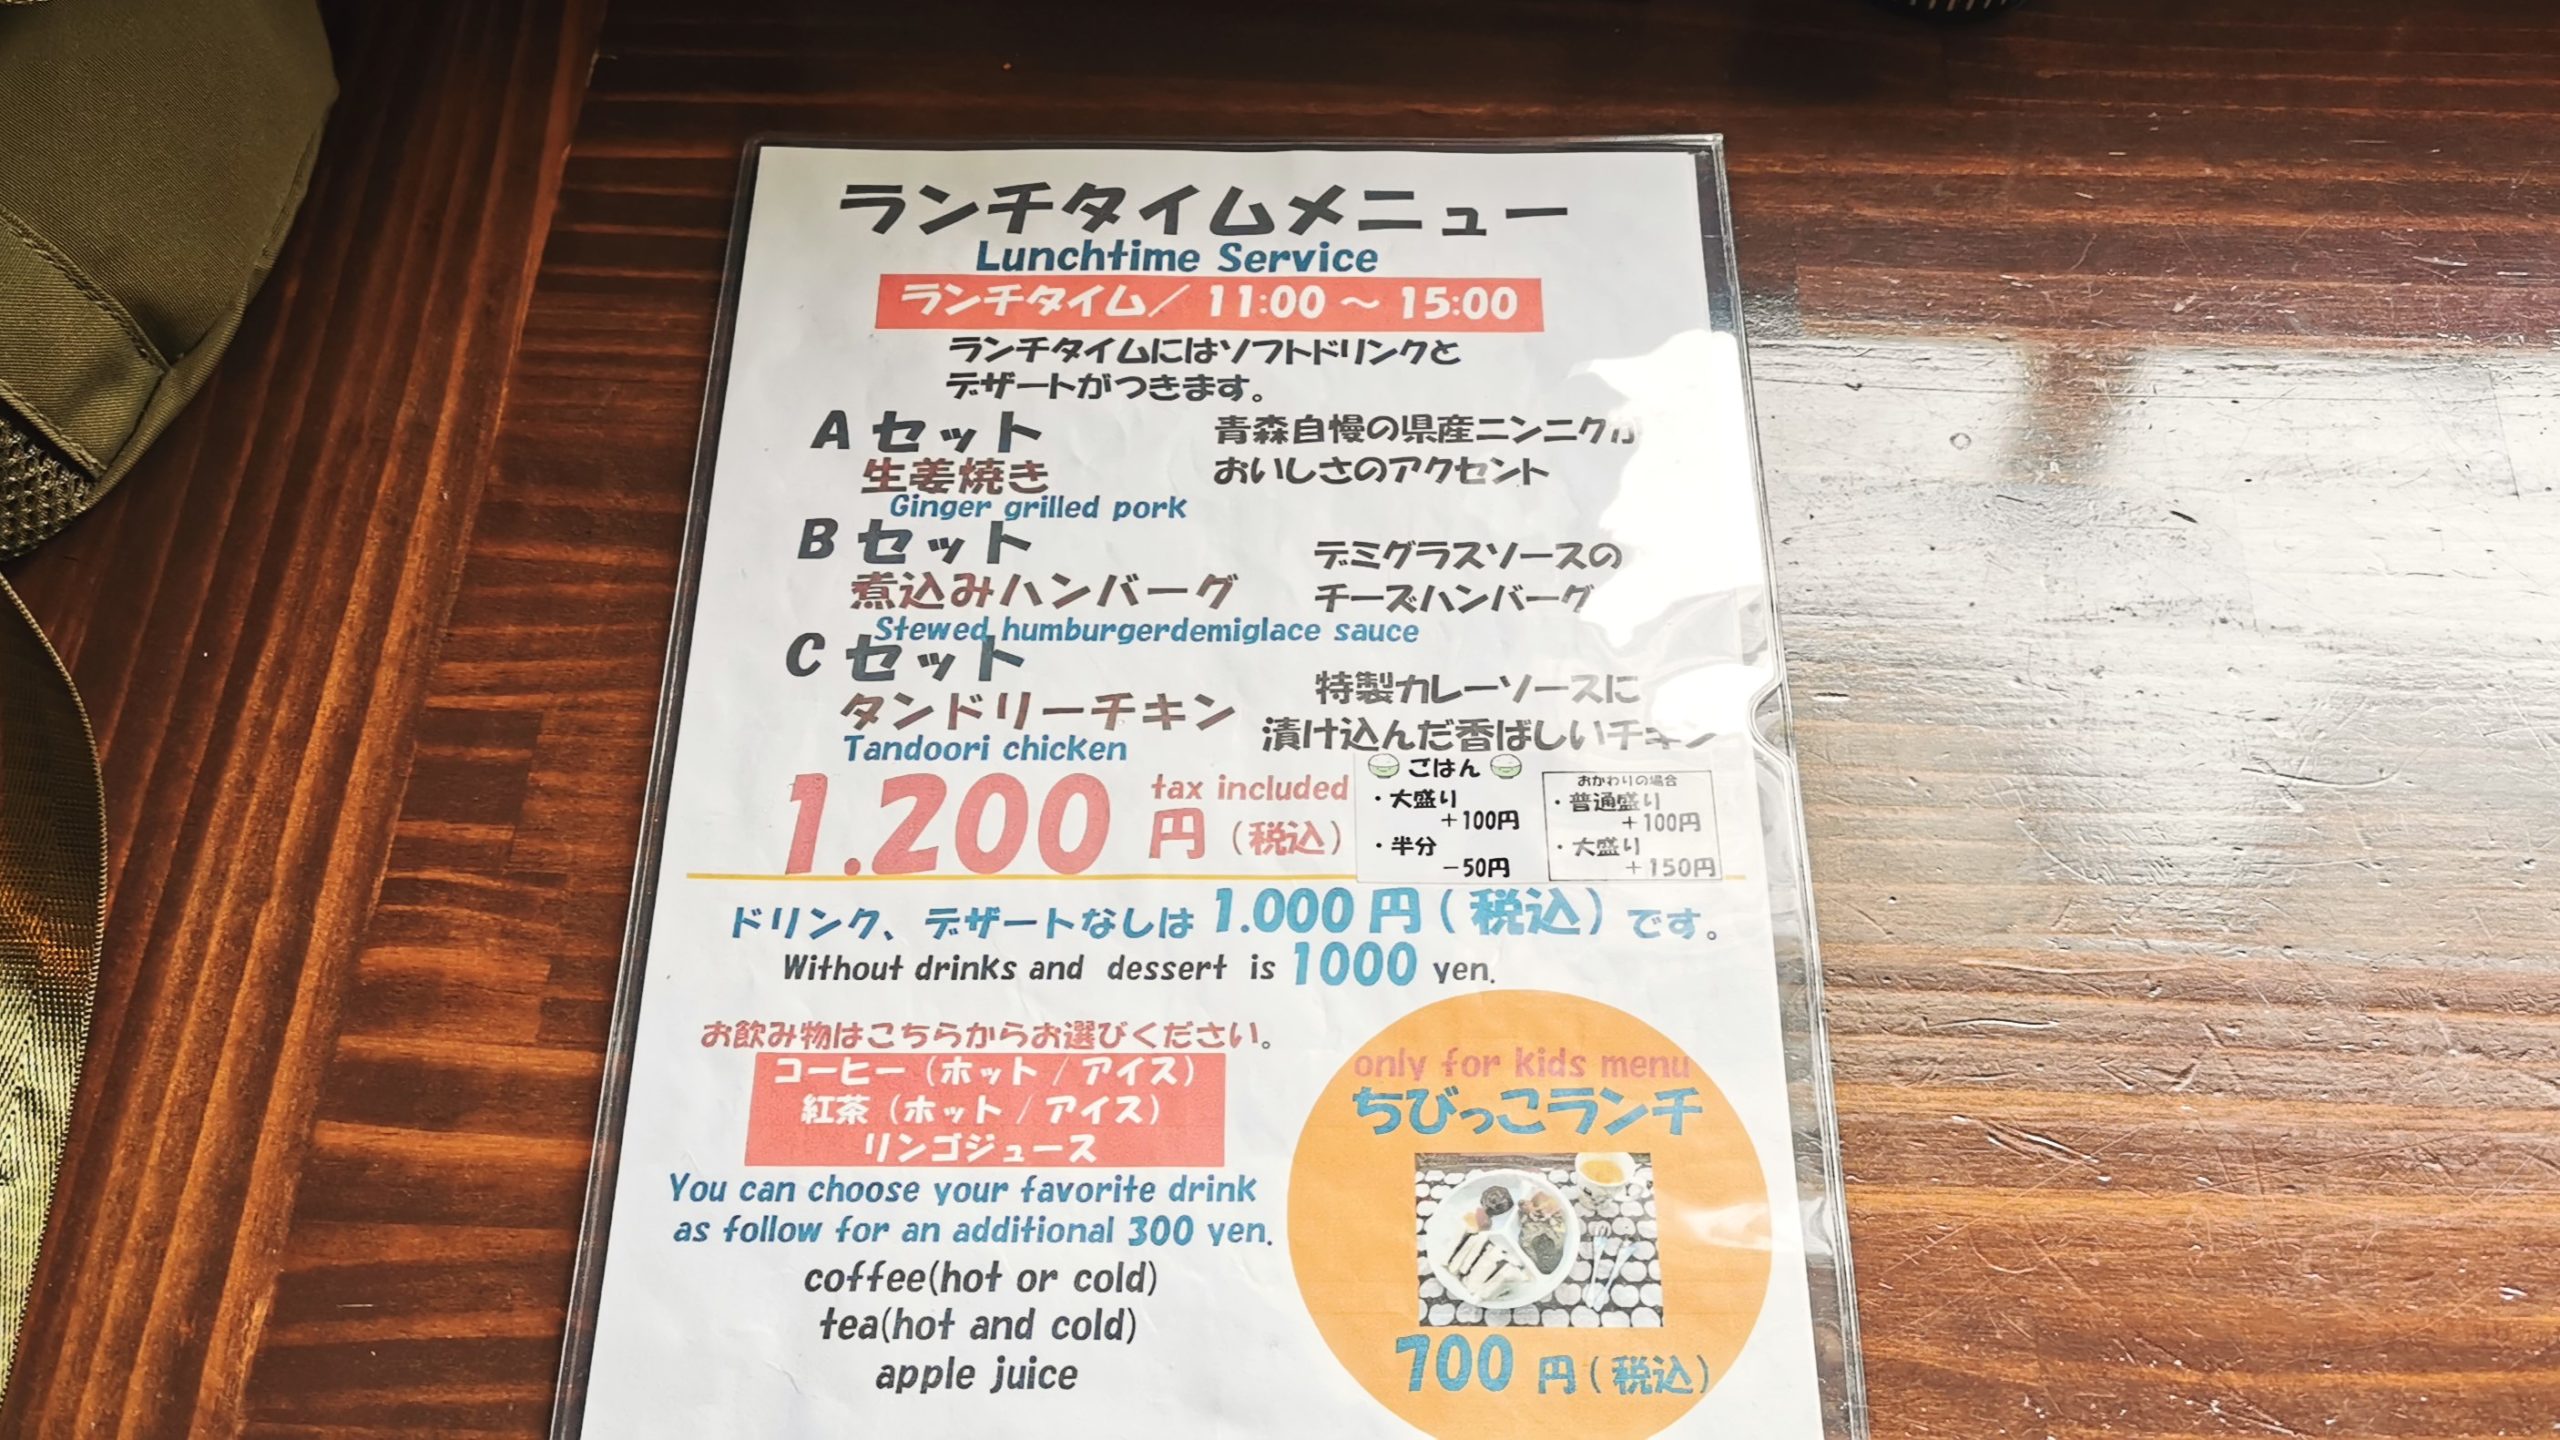 ランチタイムメニュー
Lunchtime Service
ランチタイム/ 11:00 ～ 15:00
ランチタイムにはソフトドリンクと
デザートがつきます。
A セット
生姜焼き
Ginger grilled pork
青森自慢の県産ニンニクが
おいしさのアクセント
B セット
煮込みハンバーグ
Stewed humburgerdemiglace sauce
デミグラスソースの
チーズハンバーグ
C セット
タンドリーチキン
Tandoori chicken
特製カレーソースに
漬け込んだ香ばしいチキン
1.200 円（税込）
tax included
ごはん
・大盛り
＋100円
・半分
－50円
おかわりの場合
・普通盛り
＋100円
・大盛り
＋150円
ドリンク、デザートなしは 1.000 円（税込）です。
Without drinks and dessert is 1000 yen.
お飲み物はこちらからお選びください。
コーヒー（ホット / アイス）
紅茶（ホット / アイス）
リンゴジュース
You can choose your favorite drink
as follow for an additional 300 yen.
coffee(hot or cold)
tea(hot and cold)
apple juice
only for kids menu
ちびっこランチ
700 円（税込）